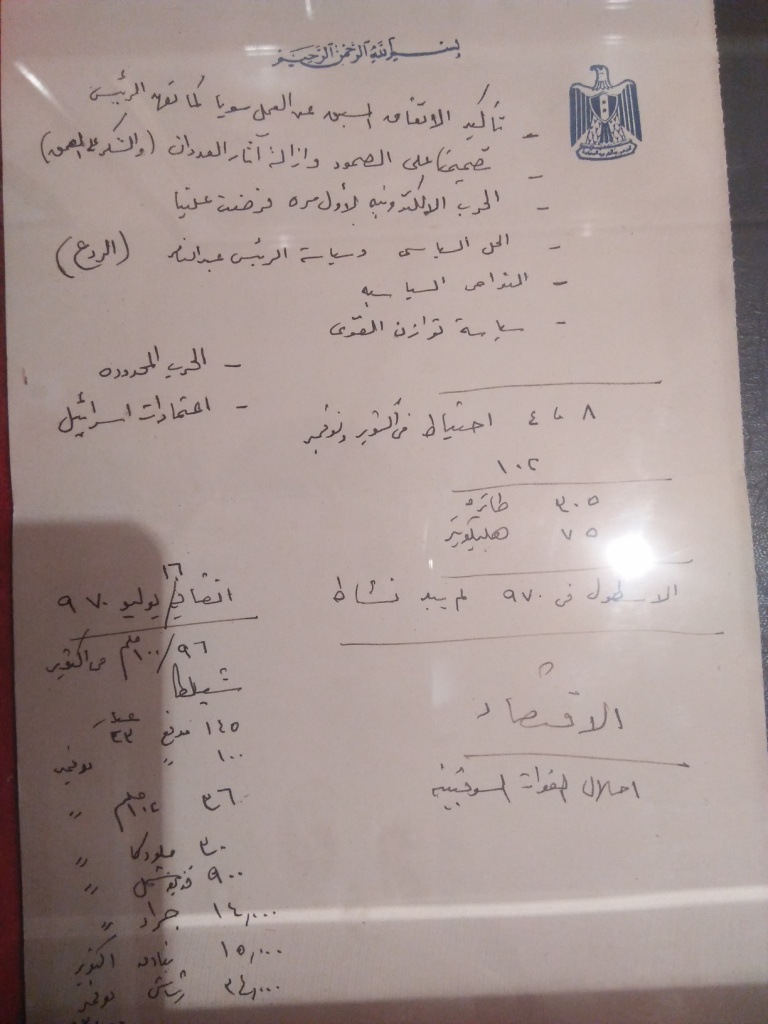 بسم الله الرحمن الرحيم
- تأكيد الاتفاق المسبق عن العمل سويا كما تعهد الرئيس
- تصميمنا على الصمود وإزالة آثار العدوان (والشكر على
- الحرب الالكترونيه لأول مره فرضت علينا
- الحل السياسى وسياسة الرئيس عبد الناصر (الردع)
- النواحى السياسيه
- سياسة توازن القوى
- الحرب المحدوده
- اعتمادات اسرائيل
٨ ٤ احتياط فى اكتوبر ونوفمبر
١٠٢
٣٠٥ طائره
٧٥ هليكوبتر
الاسطول فى ٩٧٠ لم يبد نشاط
الاقتصاد
احلال القوات السوفيتيه
اتفاقي ١٦/يوليو ٩٧٠
٩٦/١٠٠ملم من اكتوبر
شيلكا
١٤٥ مدفع ٢٣
١٠٠ " نوفمبر
٣٦ ملم "
٣٠ "
٩٠٠ "
١٤,٠٠٠ جراد "
١٥,٠٠٠ بنادق اكتوبر
٣٤,٠٠٠ رشاش نوفمبر